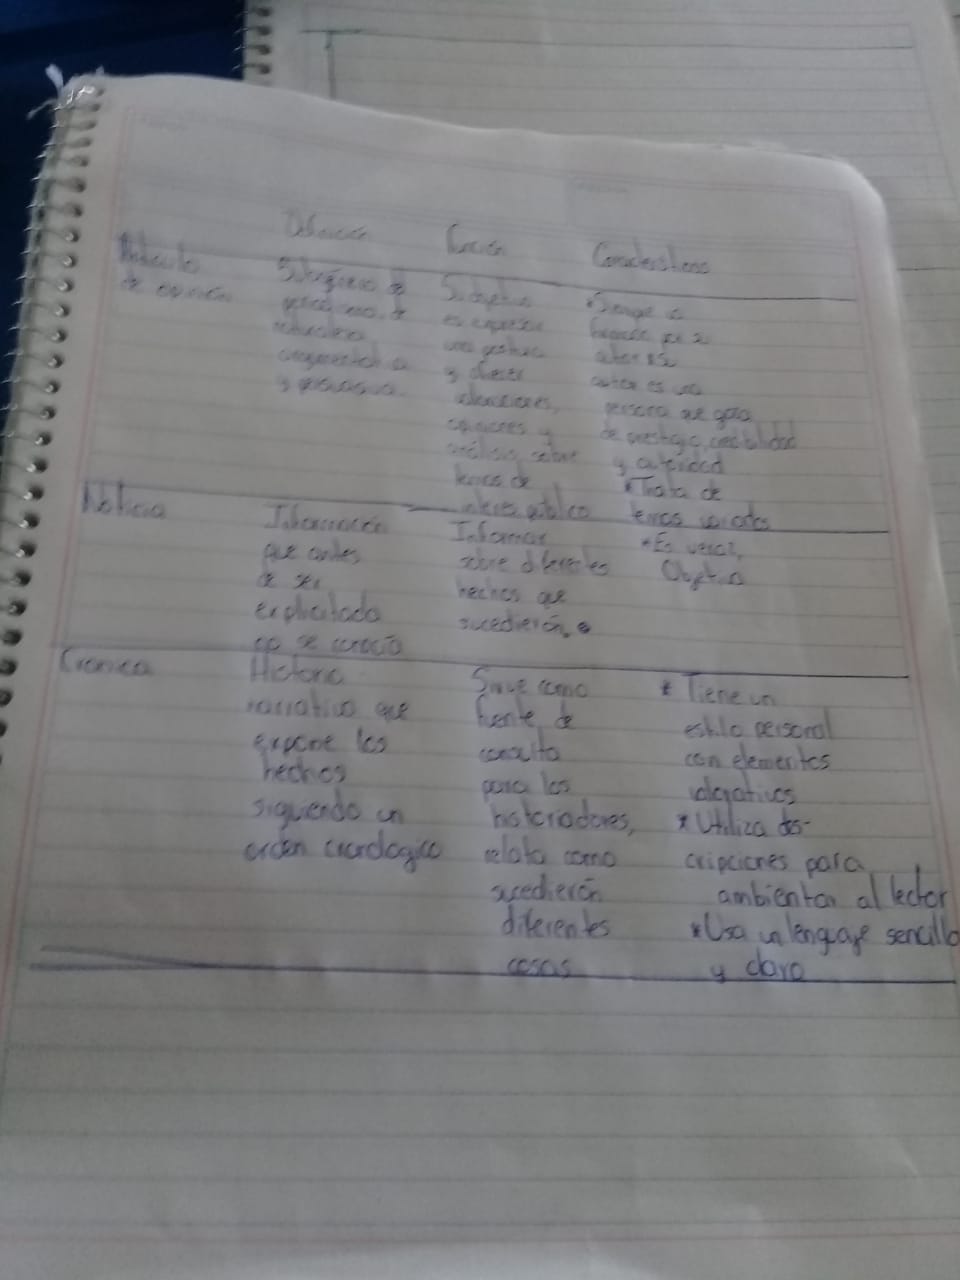 Definición Función Características
Artículo
de opinión
Subgénero de
periodismo, de
naturaleza
argumentativa
y persuasiva.
Su objetivo
es expresar
una postura
y ofrecer
valoraciones,
opiniones y
análisis sobre
temas de
interés público
*Siempre
por su
autor
autor es una
persona que goza
de prestigio, credibilidad
y autoridad
*Trata de
temas variados
Noticia
Información
que antes
de ser
explicitada
no se conocía
Informar
sobre diferentes
hechos que
sucedierón.
*Es veraz,
Objetiva
Cronica
Historia
narrativa que
expone los
hechos
siguiendo un
orden cronologico
Sirve como
fuente de
consulta
para los
historiadores,
relata como
sucedierón
diferentes
cosas
* Tiene un
estilo personal
con elementos
valorativos
* Utiliza des-
cripciones para
ambientar al lector
*Usa un lenguaje sencillo
y claro